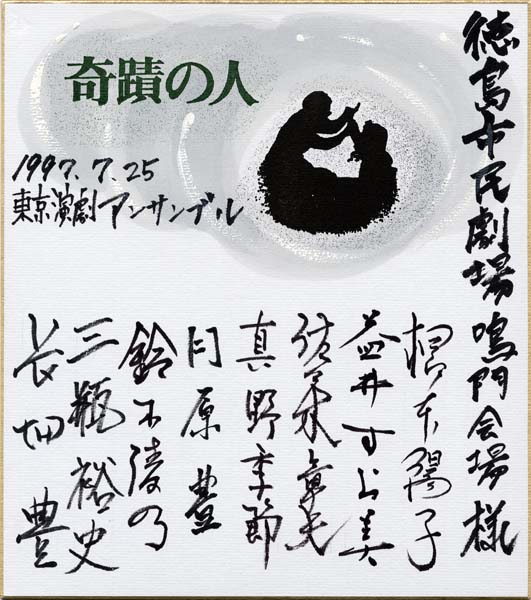 徳島市民劇場 鳴門会場 様
奇蹟の人
1997.7.25
東京演劇アンサンブル
根本陽子
益井すよ美
佐々木章夫
真野季節
月原 豊
鈴木陵乃
三瓶裕史
長畑 豊